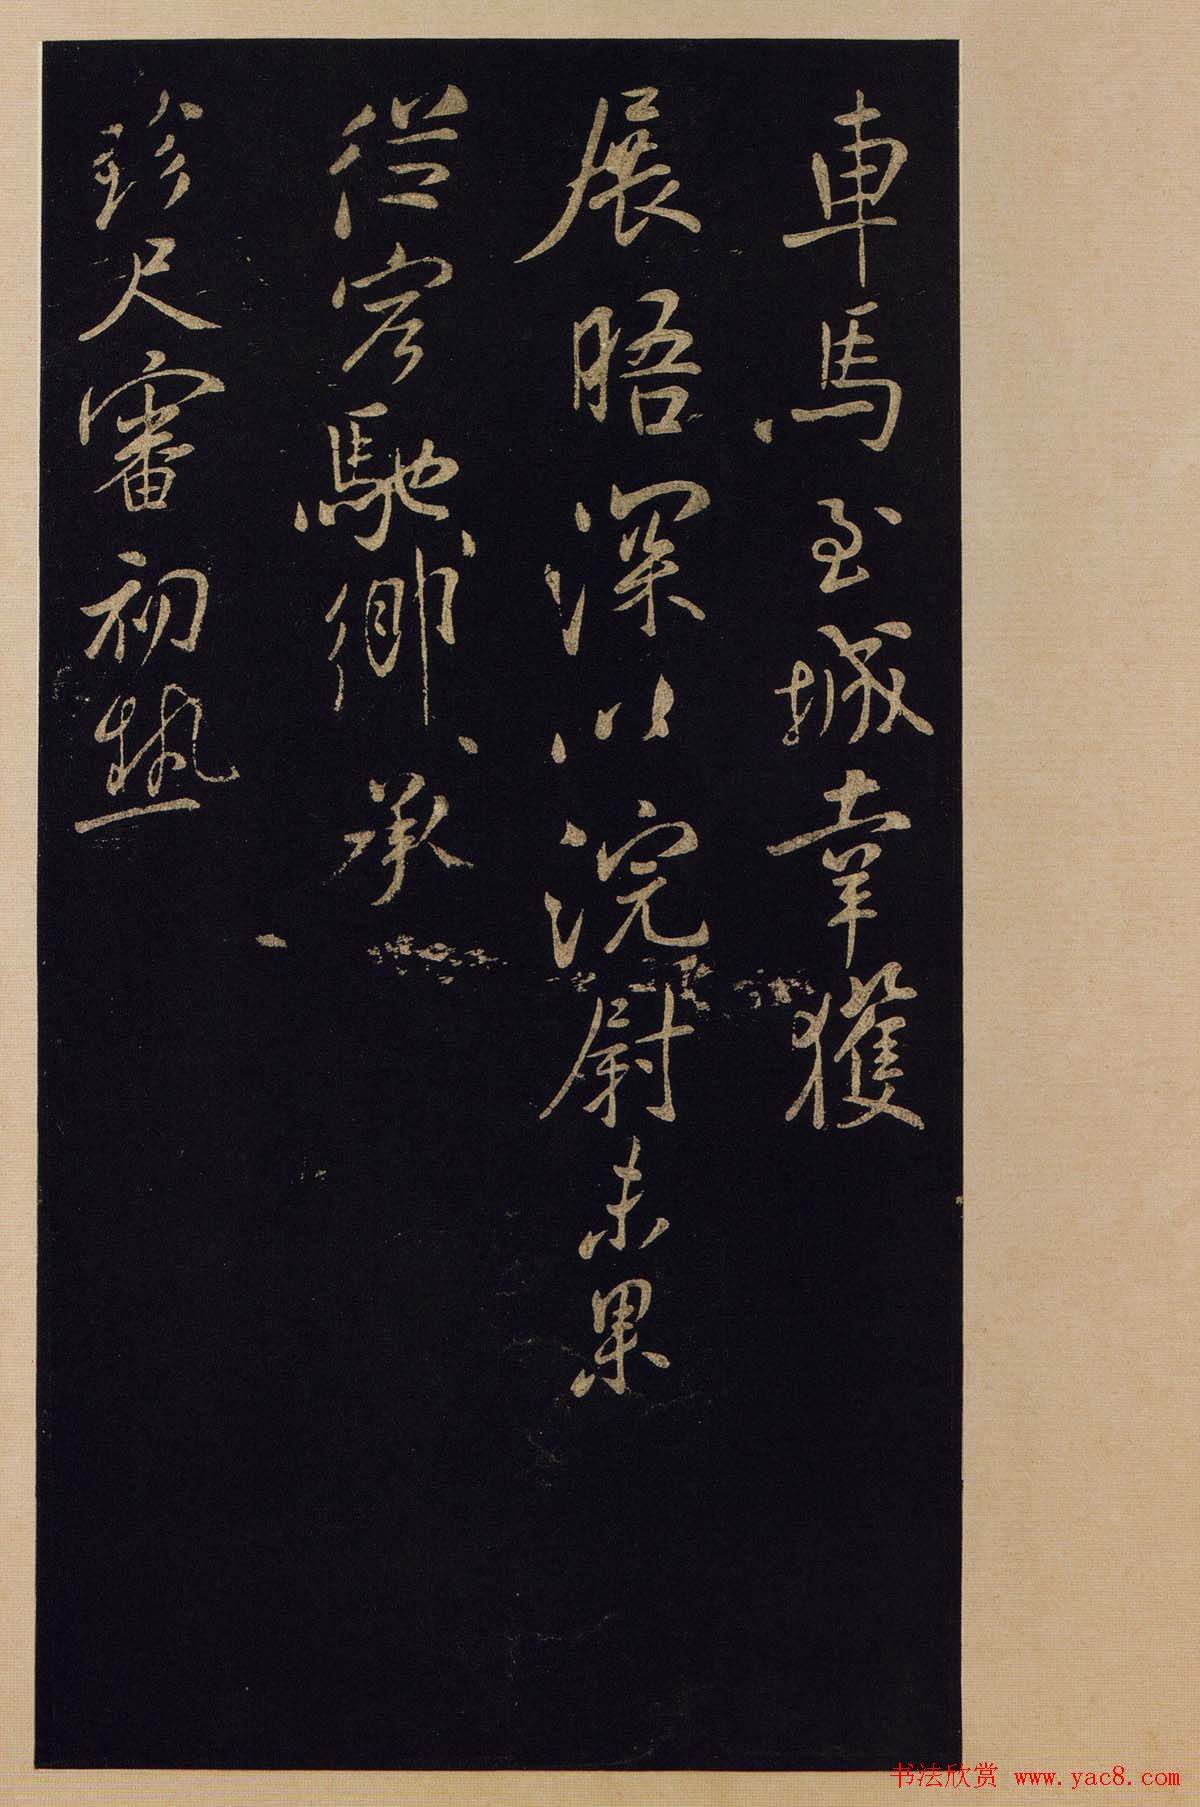 車馬至城幸獲
展晤深以浣尉未果
從容馳仰承
珍尺審初熱
书法欣赏 www.yac8.com